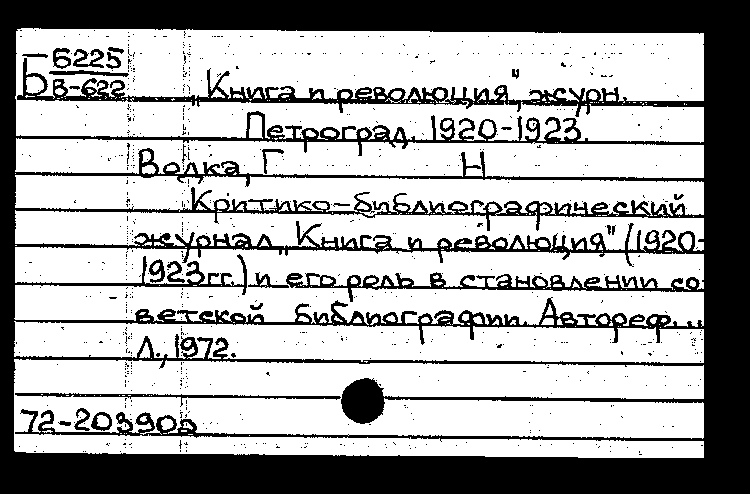 Б Б225
В-622
„Книга и революция", журн.
Петроград. 1920-1923.
Водка, Г Н
Критико-библиографический
журнал „Книга и революция" (1920-
1923гг.) и его роль в становлении со-
ветской библиографии. Автореф...
Л., 1972.
72-20390